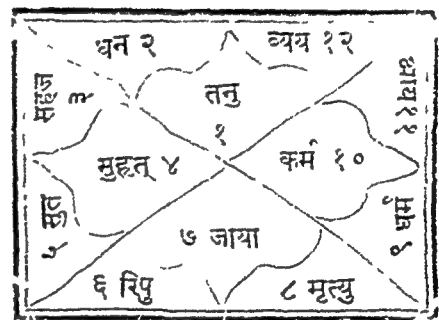 धन २
व्यय १२
सहज ३
तनु १
आय ११
सुहृत् ४
कर्म १०
सुत ५
धर्म ९
७ जाया
६ रिपु
८ मृत्यु